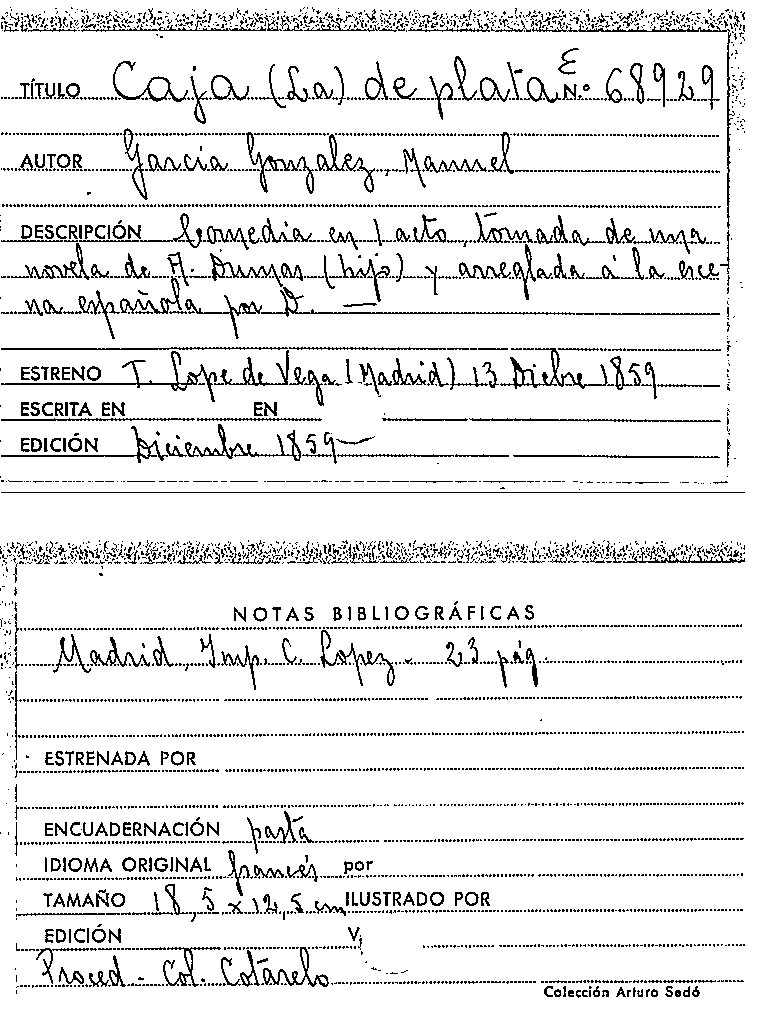 TÍTULO Caja (La) de plata E N.º 68929
AUTOR Garcia Gonzalez, Manuel
DESCRIPCIÓN Comedia en 1 acto, tomada de una
novela de A. Dumas (hijo) y arreglada á la esce-
na española por D. —
ESTRENO T. Lope de Vega (Madrid) 13 Dicbre 1859
ESCRITA EN EN
EDICIÓN Diciembre 1859—
NOTAS BIBLIOGRÁFICAS
Madrid, Imp. C. Lopez - 23 pág.
ESTRENADA POR
ENCUADERNACIÓN pasta
IDIOMA ORIGINAL francés por
TAMAÑO 18,5 x 12,5 cm ILUSTRADO POR
EDICIÓN V
Proced - Col. Cotarelo
Colección Arturo Sedó